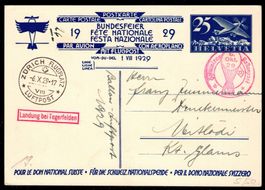 POSTKARTE
CARTE POSTALE CARTOLINA POSTALE
19 BUNDESFEIER 29
FÊTE NATIONALE
FESTA NAZIONALE
PAR AVION MIT FLUGPOST CON AEROPLANO
1 VIII 1929
25
HELVETIA
ZÜRICH FLUGPLATZ
LUFTPOST
Landung bei Tagerfelden
Ballon
Franz Zimmermann
Mitlödi
Kt. Glarus
POUR LE DON NATIONAL SUISSE - FÜR DIE SCHWEIZ. NATIONALSPENDE - PER IL DONO NAZIONALE SVIZZERO